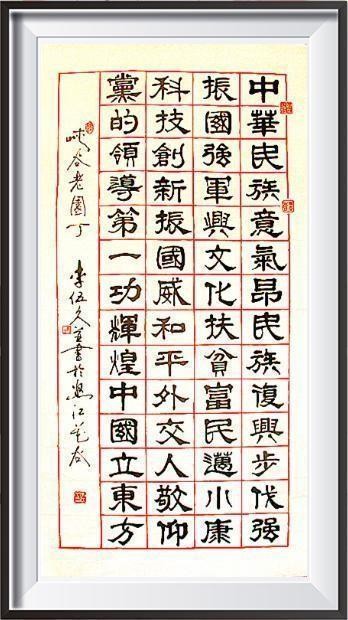 中華民族意氣昂民族復興步伐强
振國强軍興文化扶貧富民邁小康
科技創新振國威和平外交人敬仰
黨的領導第一功輝煌中國立東方
峽谷老園丁 李伍久並書於怒江